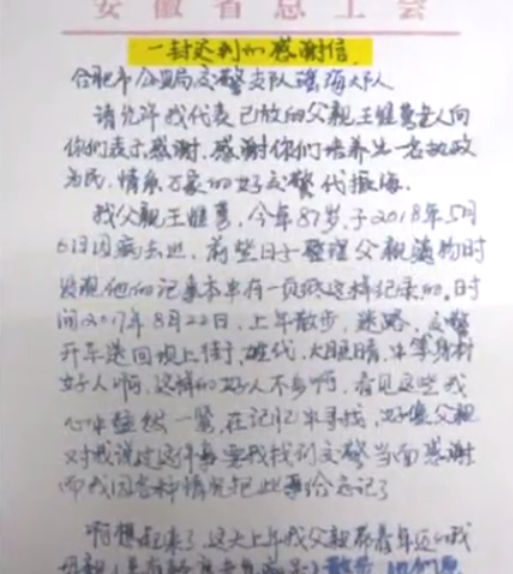 安徽省总工会
一封迟到的感谢信
合肥市公安局交警支队瑶海大队
请允许我代表已故的父亲王维勇老人向
你们表示感谢,感谢你们培养出一名执政
为民,情系万家的好交警代振海。
我父亲王维勇,今年87岁,于2018年5月
6日因病去世,前些日子整理父亲遗物时
发现他的记事本中有一页是这样纪录的,时
间2017年8月22日,上午散步,迷路,交警
开车送回坝上街,姓代,大眼睛,中等身材
好人啊,这样的好人不多啊,看见这些我
心中猛然一紧,在记忆中寻找,好像父亲
对我说过这件事要我找到交警当面感谢
而我因各种情况把此事给忘记了
啊想起来了,这天上午我父亲都春年迈的我
母亲